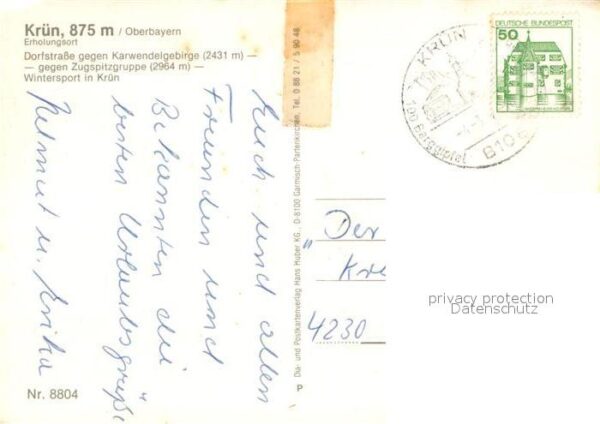 Krün, 875 m / Oberbayern
Erholungsort
Dorfstraße gegen Karwendelgebirge (2431 m) —
— gegen Zugspitzgruppe (2964 m) —
Wintersport in Krün
Euch und allen
Freunden und
Bekannten die
besten Urlaubsgrüße
Helmut u. Anika
Nr. 8804
Dia- und Postkartenverlag Hans Huber KG., D-8100 Garmisch-Partenkirchen, Tel. 0 88 21 / 5 90 48
P
KRÜN
100 Berggipfel
810
DEUTSCHE BUNDESPOST
50
„Der
Kre
4230
privacy protection
Datenschutz